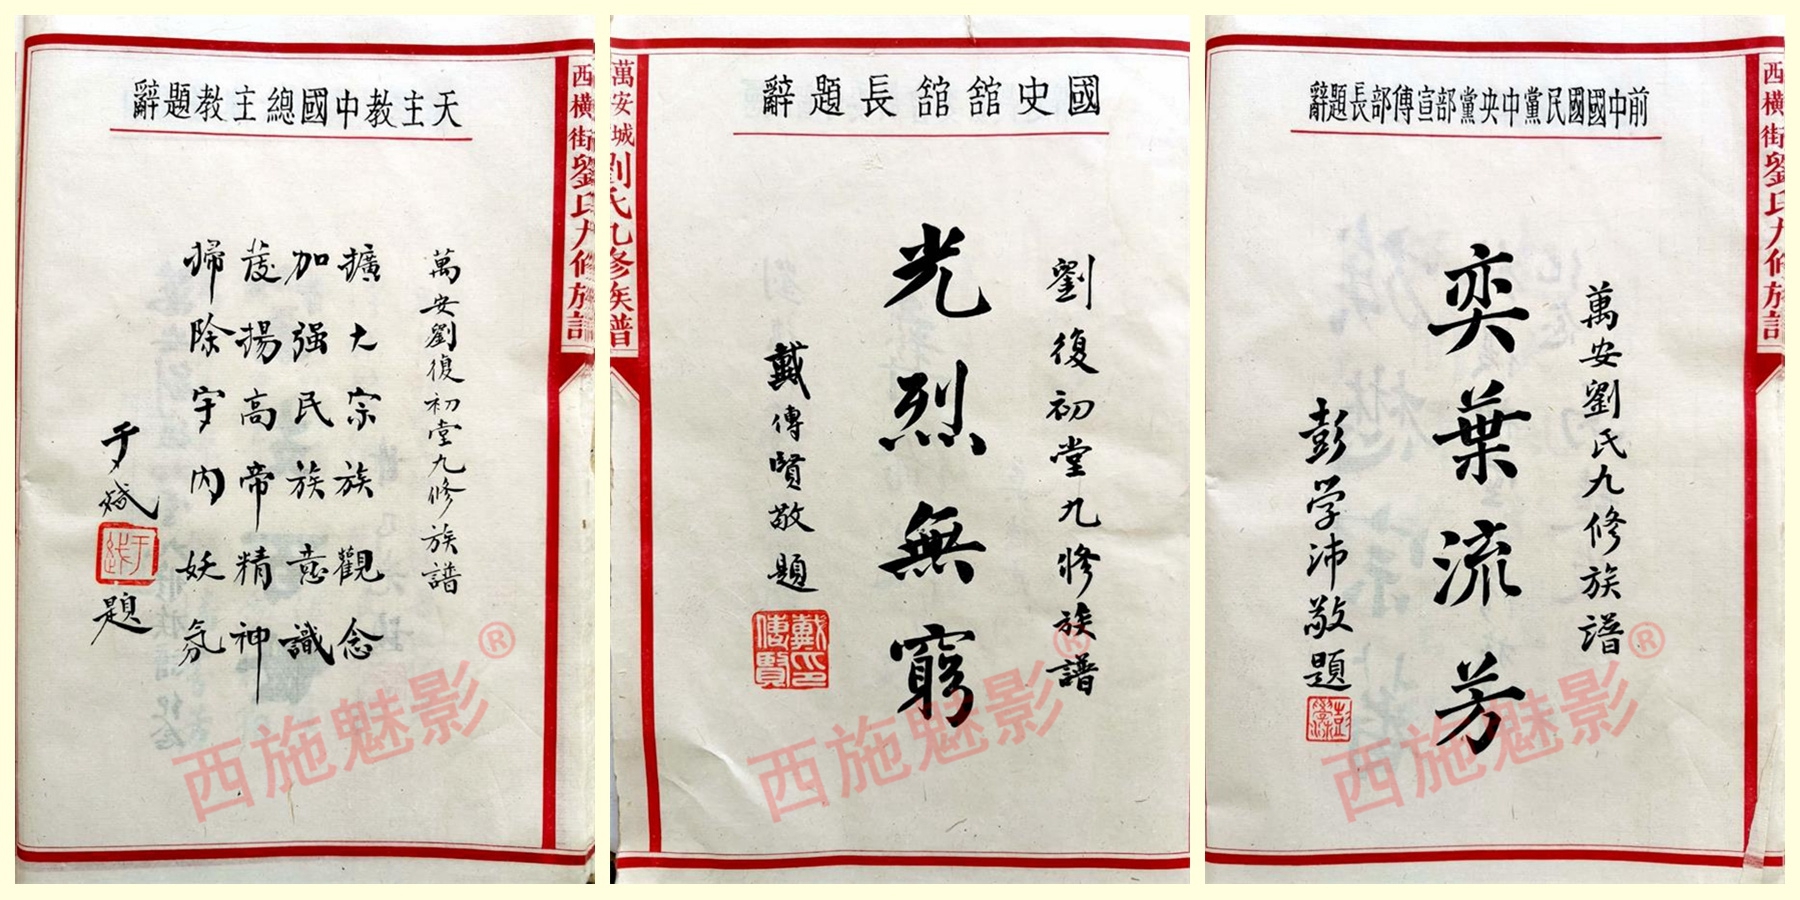 天主教中國總主教題辭
萬安劉復初堂九修族譜
擴大宗族觀念
加强民族意識
發揚高帝精神
掃除宇內妖氛
于斌
于斌
題
西橫街劉氏九修族譜
西施魅影®
國史館館長題辭
劉復初堂九修族譜
光烈無窮
戴傳賢敬題
戴傳賢印
萬安城劉氏九修族譜
西施魅影®
前中國國民黨中央黨部宣傳部長題辭
萬安劉氏九修族譜
奕葉流芳
彭学沛敬題
西橫街劉氏九修族譜
西施魅影®